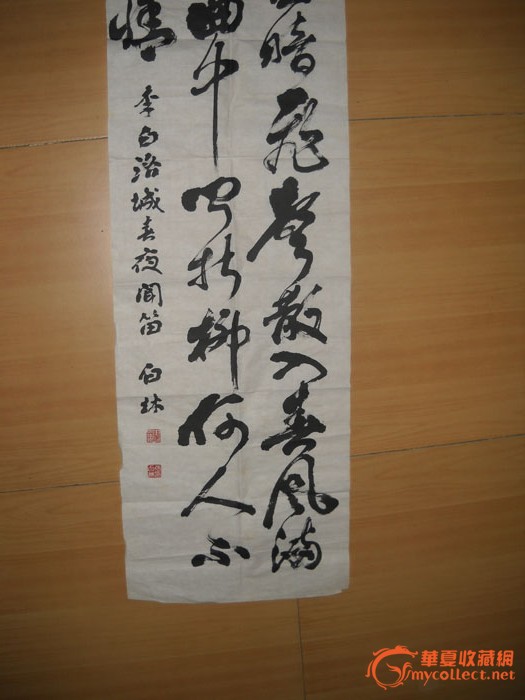 暗飛聲散入春風滿
曲中聞折柳何人不
情
李白洛城春夜聞笛 伯林
華夏收藏網
mycollect.net